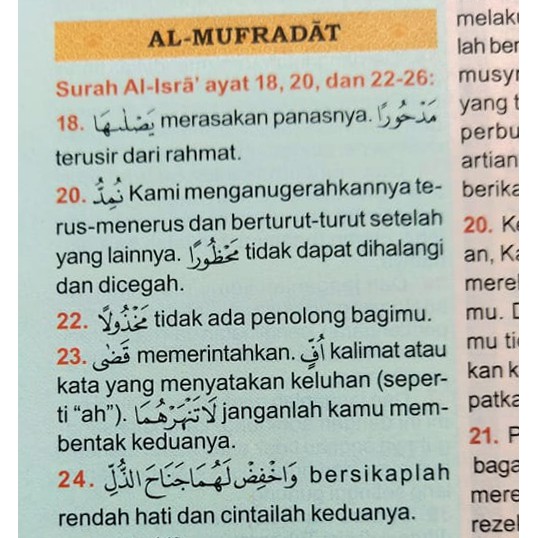 AL-MUFRADĀT
Surah Al-Isrā' ayat 18, 20, dan 22-26:
18. يَصْلٰىهَا merasakan panasnya. مَدْحُورًا
terusir dari rahmat.
20. نُمِدُّ Kami menganugerahkannya te-
rus-menerus dan berturut-turut setelah
yang lainnya. مَحْظُورًا tidak dapat dihalangi
dan dicegah.
22. مَخْذُولًا tidak ada penolong bagimu.
23. قَضٰى memerintahkan. أُفٍّ kalimat atau
kata yang menyatakan keluhan (seper-
ti “ah”). لَا تَنْهَرْهُمَا janganlah kamu mem-
bentak keduanya.
24. وَاخْفِضْ لَهُمَا جَنَاحَ الذُّلِّ bersikaplah
rendah hati dan cintailah keduanya.
melaku
lah ber
musyr
yang t
perbu
artian
berika
20. Ke
an, Ka
merel
mu. D
mu ti
kan k
patka
21. P
baga
mere
rezel